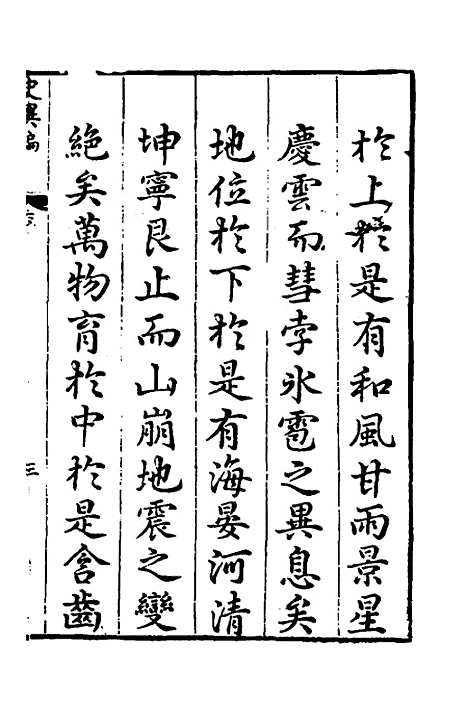 於上於是有和風甘雨景星
慶雲而彗孛氷雹之異息矣
地位於下於是有海晏河清
坤寧艮止而山崩地震之變
絶矣萬物育於中於是含齒
史纂編
序
三